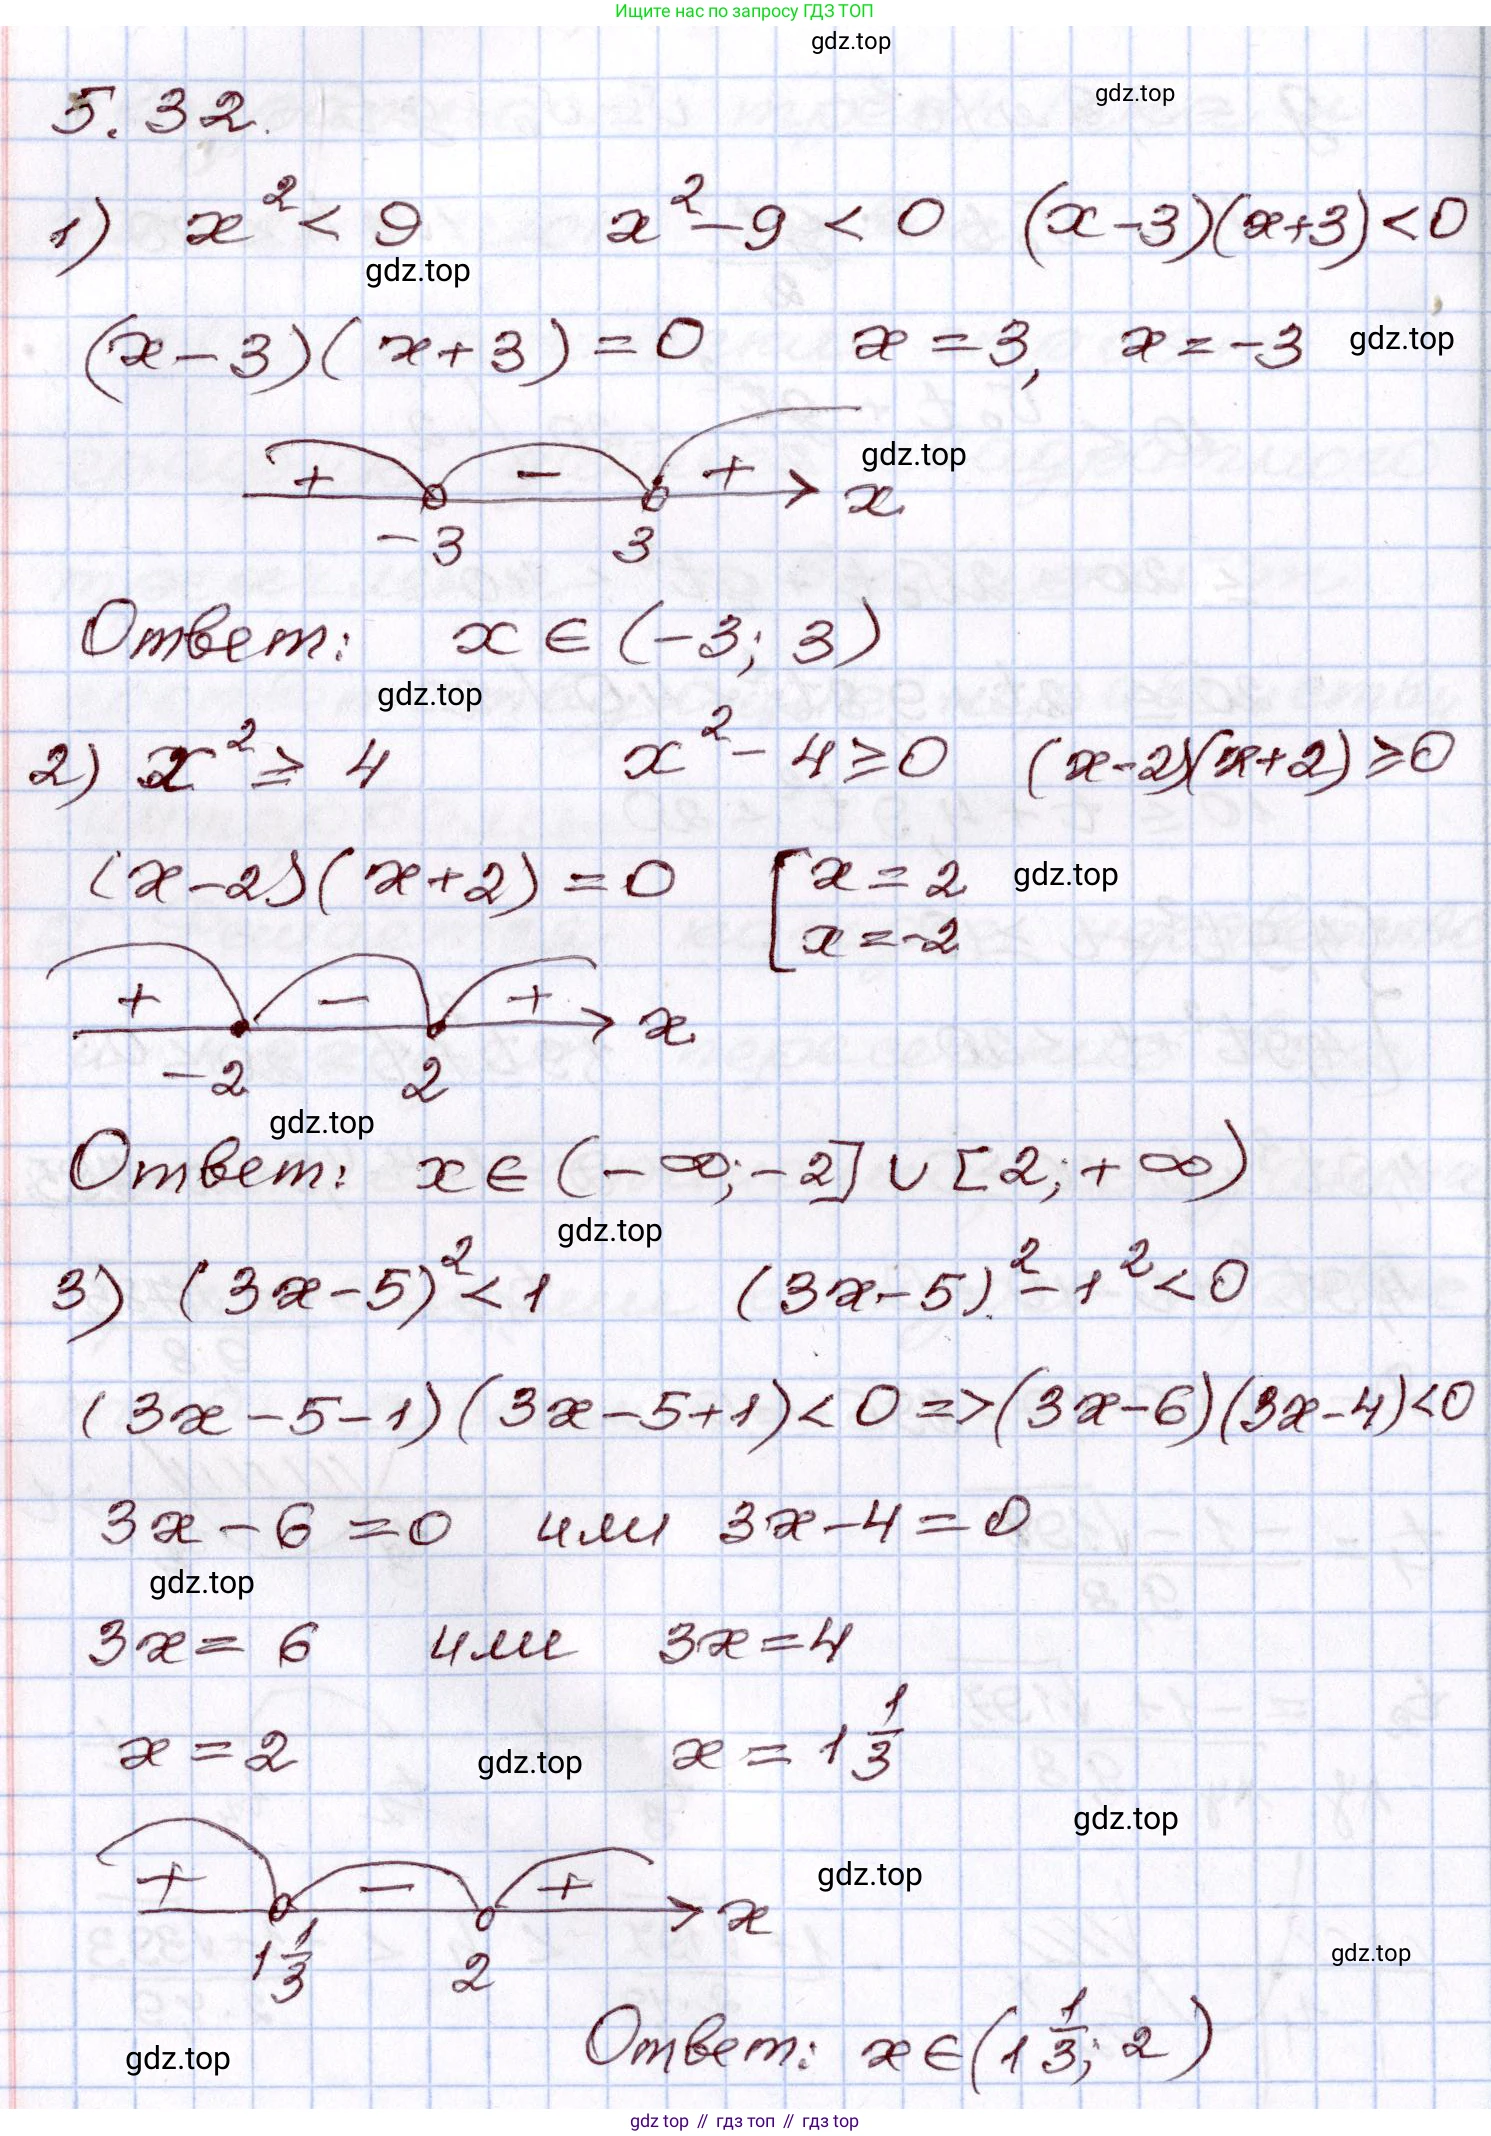 Ищите нас по запросу ГДЗ ТОП
gdz.top
gdz.top
5.32.
1) x² < 9 x² - 9 < 0 (x-3)(x+3) < 0
gdz.top
(x-3)(x+3) = 0 x = 3, x = -3 gdz.top
+ - + gdz.top
x
-3 3
Ответ: x ∈ (-3; 3)
gdz.top
2) x² ≥ 4 x² - 4 ≥ 0 (x-2)(x+2) ≥ 0
(x-2)(x+2) = 0 [x = 2 gdz.top
x = -2
+ - +
x
-2 2
gdz.top
Ответ: x ∈ (-∞; -2] ∪ [2; +∞)
gdz.top
3) (3x-5)² < 1 (3x-5)² - 1² < 0
(3x-5-1)(3x-5+1) < 0 => (3x-6)(3x-4) < 0
3x-6 = 0 или 3x-4 = 0
gdz.top
3x = 6 или 3x = 4
x = 2 gdz.top x = 1 1/3
gdz.top
+ - + gdz.top
x
1 1/3 2 gdz.top
Ответ: x ∈ (1 1/3; 2)
gdz.top
gdz top // гдз топ // gdz.top